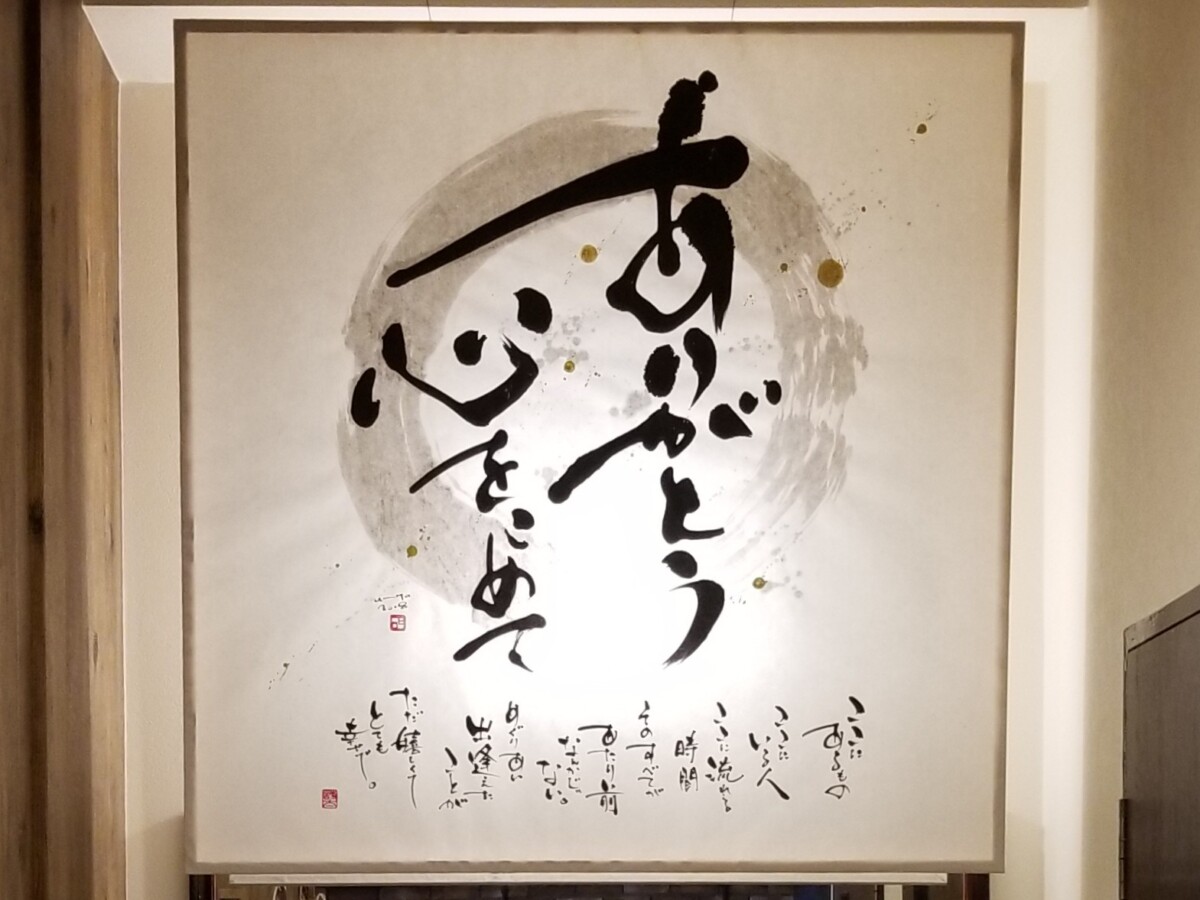 ありがとう
心をこめて
ここに
あるもの
ここに
いる人
ここに流れる
時間
そのすべてが
あたり前
なんかじゃ
ない。
めぐりあい
出逢えた
ことが
ただ嬉しくて
とても
幸せです。